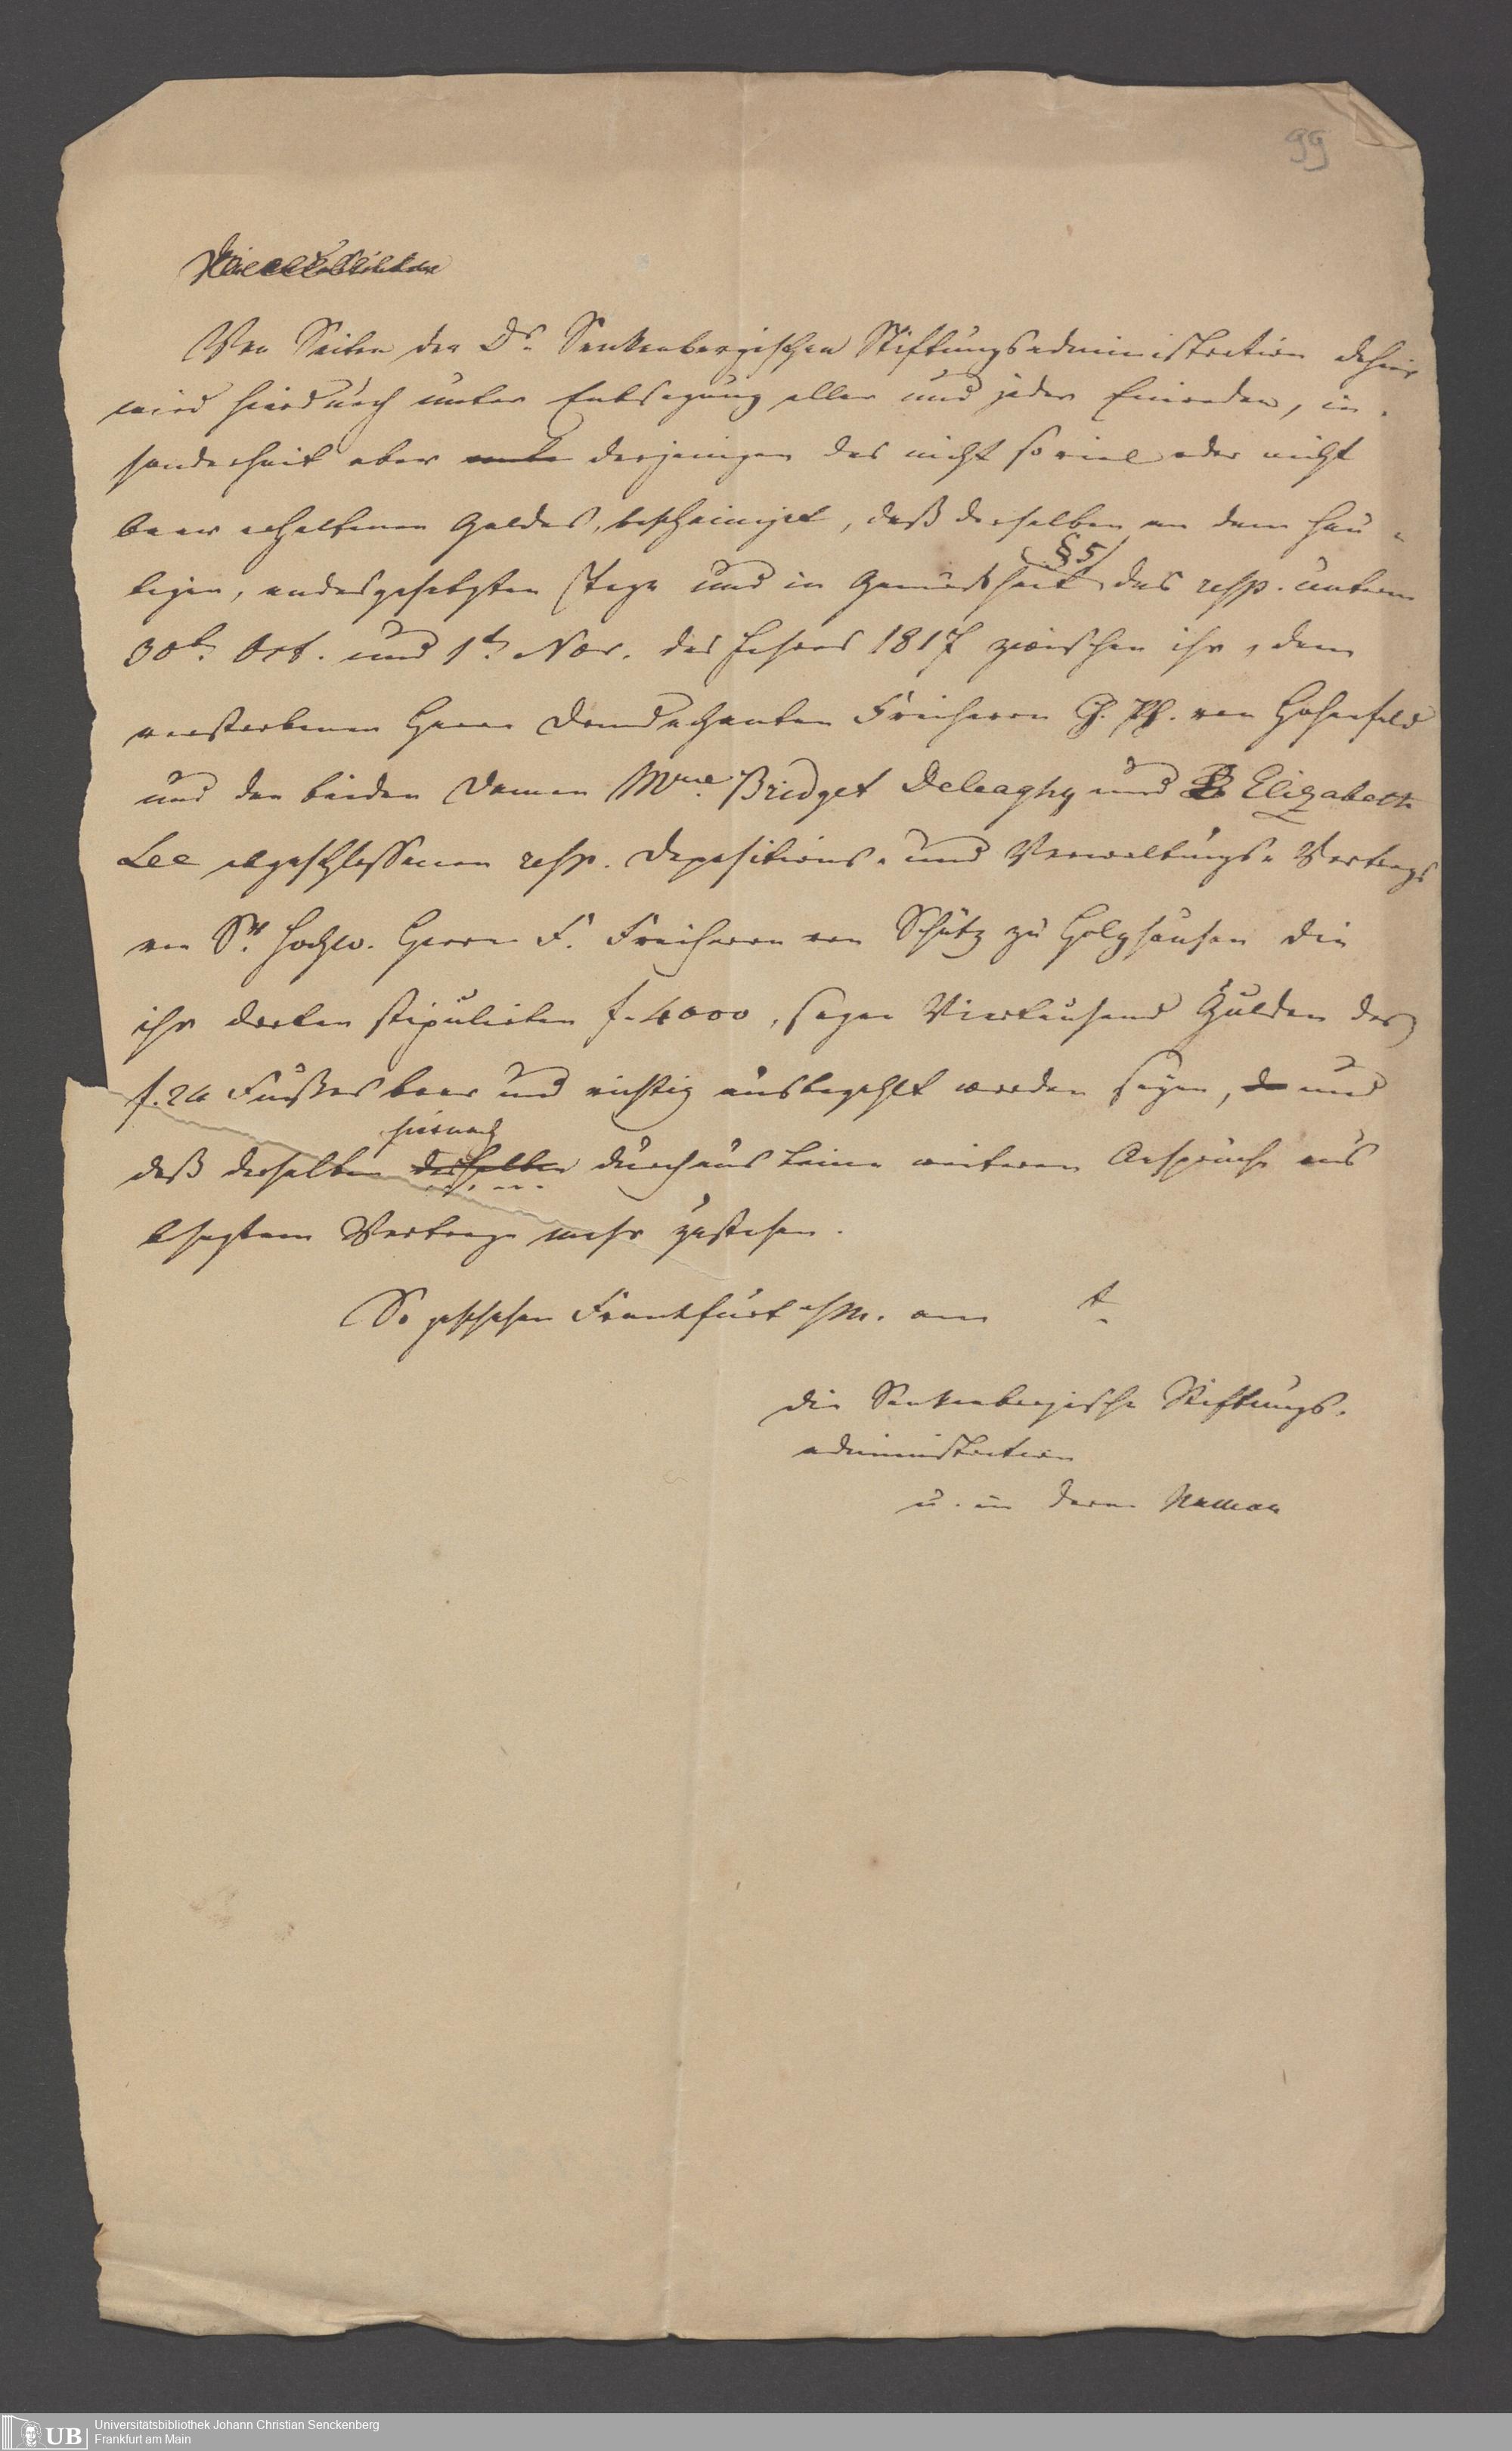 99
Von Seiten der Dr. Senkenbergischen Stiftungsadministration dahier
wird hierdurch unter Entsagung aller und jeder Einreden, in-
sonderheit aber derjenigen des nicht so viel oder nicht
baar erhaltenen Geldes, bescheiniget, daß derselben an dem heu-
tigen, endesgesetzten Tage und in Gemäsheit § 5 des resp. unterm
30t. Oct. und 1t. Nov. des Jahres 1817 zwischen ihr, dem
verstorbenen Herrn Domdechanten Freiherrn Ch. Ph. von Hohenfeld
und den beiden Damen Mme. Bridget Deleaghy und Elizabeth
Lee abgeschlossenen resp. Depositions- und Verwaltungs-Vertrags
von Sr. Hochw. Herrn F. Freiherrn von Schütz zu Holzhausen die
ihr darin stipulirten f. 4000, sagen Viertausend Gulden des
f. 24 Fußes baar und richtig ausbezahlt worden seyen, und
hiernach
daß derselben derselben durchaus keine weiteren Ansprüche aus
besagtem Vertrage mehr zustehen.
So geschehen Frankfurt a/M. am t.
Die Senkenbergische Stiftungs-
administration
u. in deren Namen
UB
Universitätsbibliothek Johann Christian Senckenberg
Frankfurt am Main